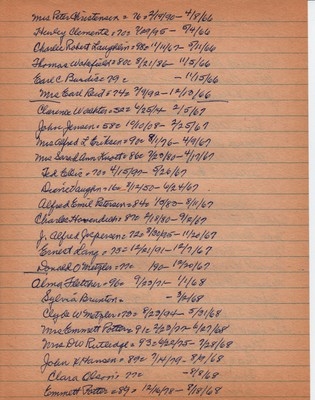 Mrs Peter Christensen = 76 2/14/90 - 4/8/66
Hurley Clements = 70 = 7/09/95 - 5/4/66
Charlie Robert Laughlin = 98 = 11/4/67 - 5/11/66
Thomas Wakefield = 80 = 8/21/86 - 11/5/66
Earl C. Burdis = 79 c - 11/15/66
Mrs Earl Reid = 74 = 7/4/92 - 12/10/66
Clarence Webster = 52 = 4/25/14 2/5/67
John Jensen = 58 = 10/10/08 - 2/25/67
Mrs Alfred L. Eriksen = 90 = 8/1/76 - 4/9/67
Mrs Sarah Ann Knott = 86 = 7/20/80 - 4/17/67
Ted Ellis = 70 = 4/15/97 - 5/26/67
Dixie Vaughn = 16 = 2/12/50 - 6/24/67
Alfred Emil Petersen = 84 = 1/9/83 - 8/11/67
Charles Havendish = 87 = 2/18/80 - 9/2/67
J. Alfred Jespersen = 72 = 3/30/95 - 11/20/67
Ernest Lang = 75 = 12/21/91 - 12/7/67
Donald O Metzler = 77 = /90 - 12/20/67
Alma Fletcher = 96 = 9/23/71 - 1/1/68
Sylvia Bruxton = - 3/2/68
Clyde W Metzler = 73 = 8/23/94 - 5/21/68
Mrs Emmett Potter = 91 = 2/23/77 - 6/27/68
Mrs D W Rutledge = 93 = 4/24/75 - 7/28/68
John H. Hansen = 89 = 7/14/79 - 8/9/68
Clara Olson = 77 = - 8/8/68
Emmett Potter = 89 = 12/16/78 - 8/18/68